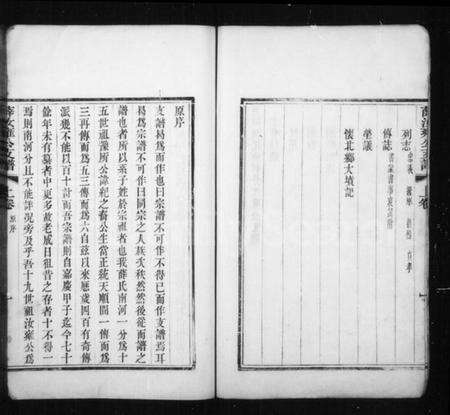 薛汝雍公支譜 上卷
列志
傳誌
塋議
懷北鄉大墳記
原序
支譜曷為而作也曰宗譜作不得已而作支譜焉耳
曷為宗譜作也曰同宗之人族矣秩然然後從而譜之
譜也者所以系子姓於宗祖者也我薛氏南河一分為十
五世祖豫所公諱紀之裔公生當正統天順間一傳而為
三再傳而為五三傳而為六自茲以來歷歲四百有奇傳
派幾不能以百十計而吾宗譜則自嘉慶甲子迄今七十
餘年未有纂者中更多故老成日徂昔之存者十不得一
焉則南河分且不能詳況旁及乎吾十九世祖汝雍公為
薛汝雍公支譜 上卷 原序 一